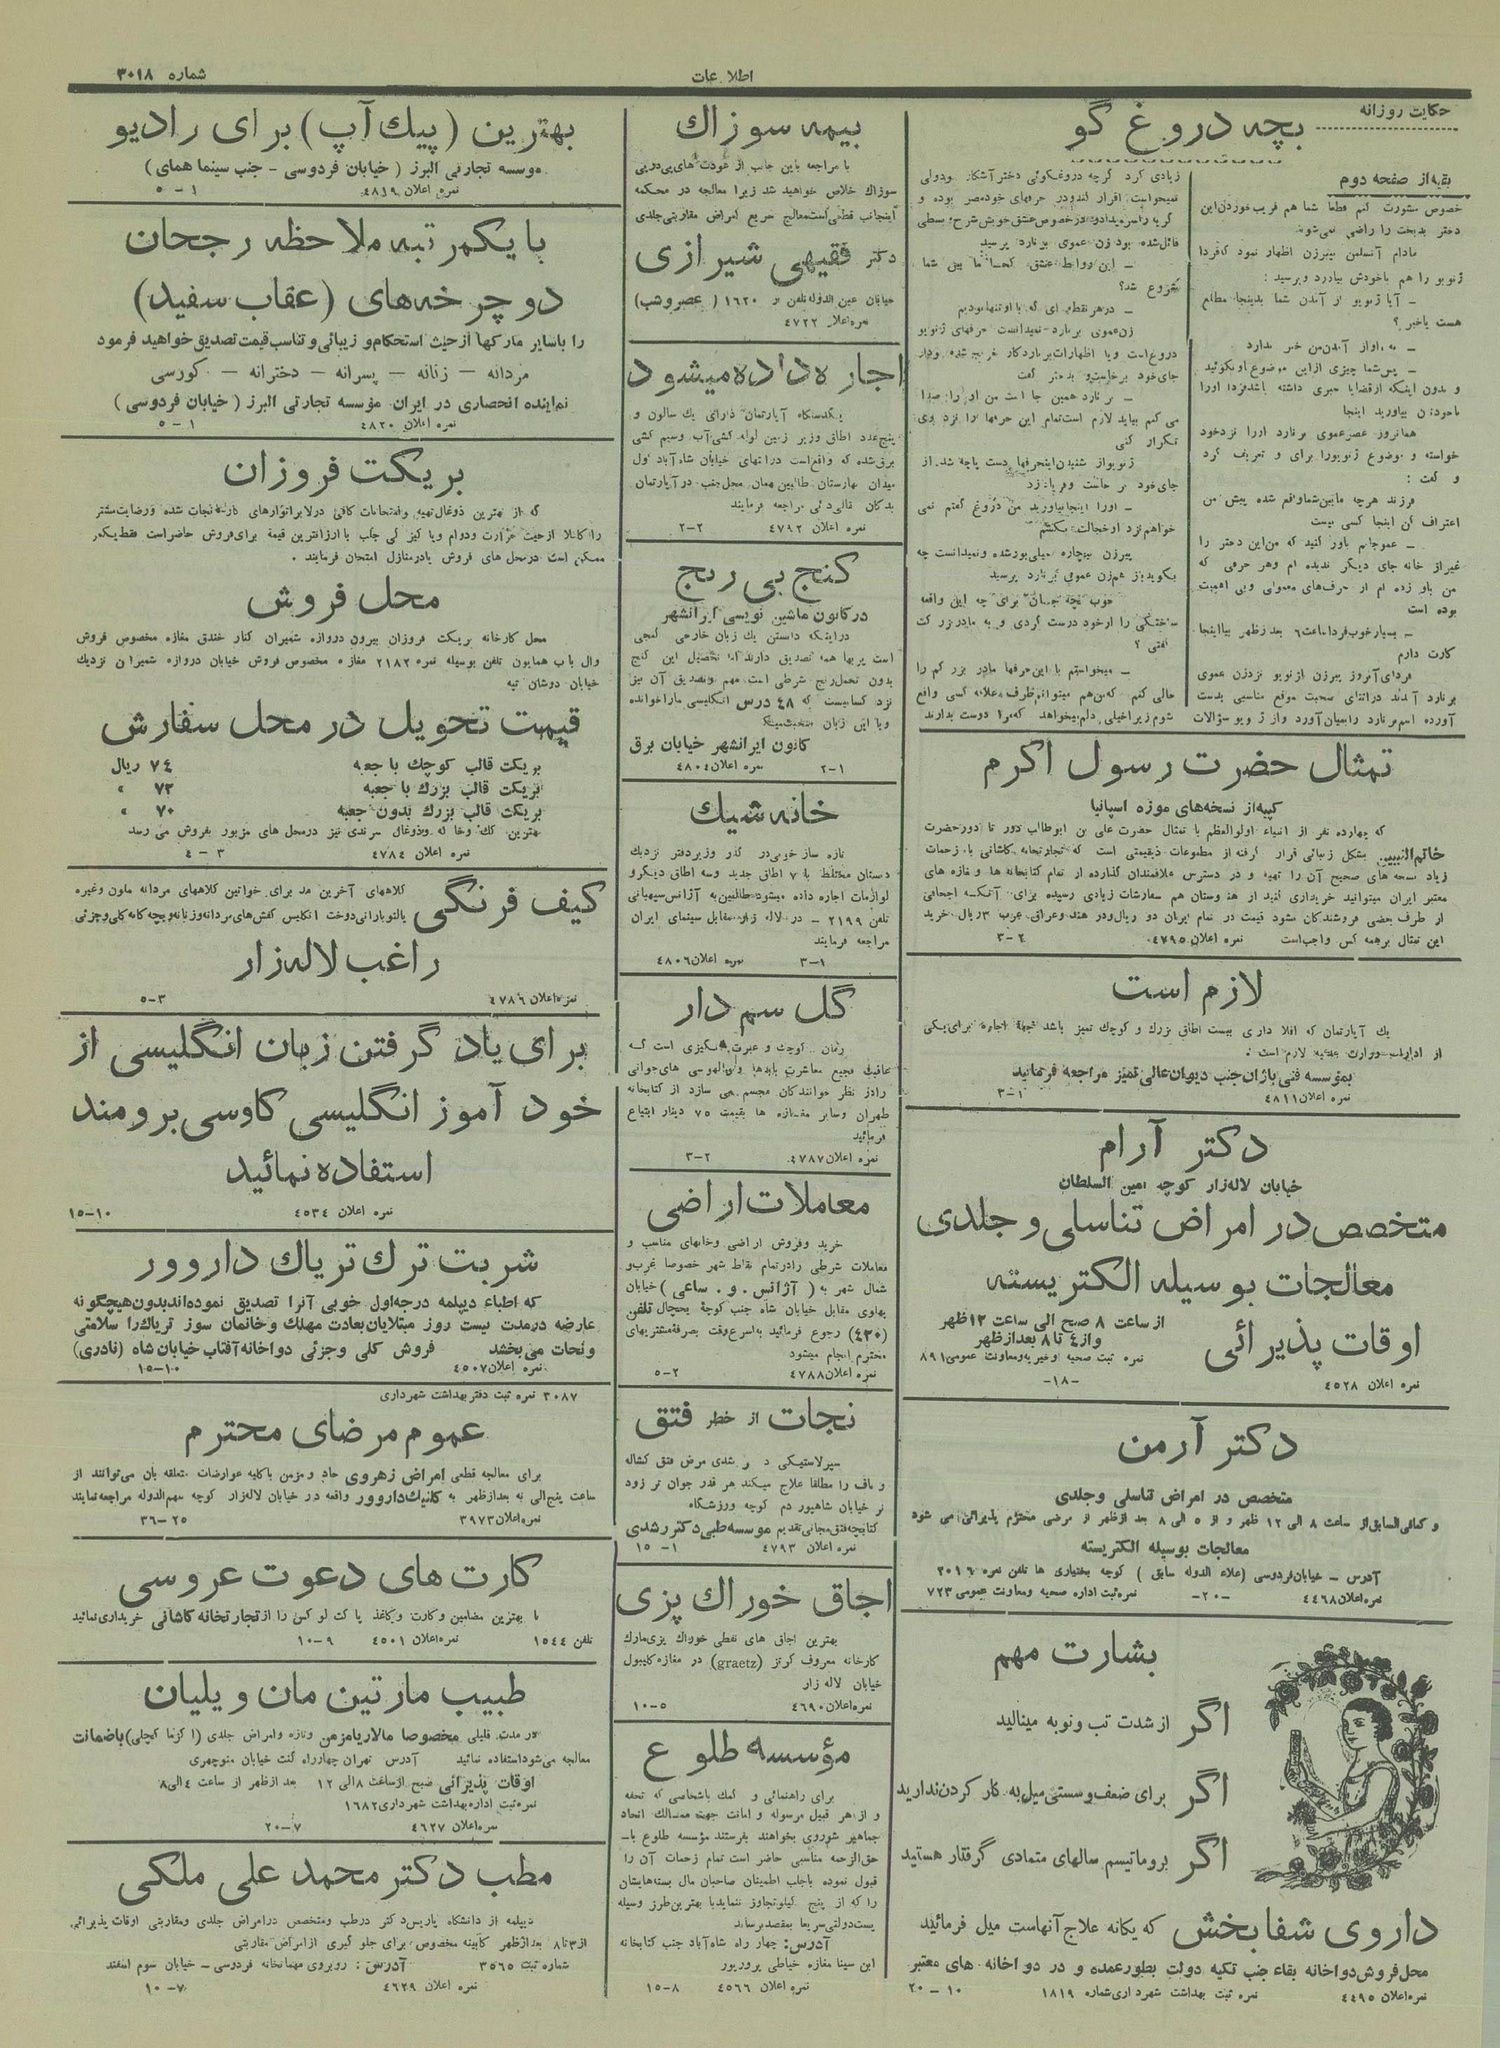 شماره ۳۰۱۸
اطلاعات
حکایت روزانه
بچه دروغ گو
بقیه از صفحه دوم
دختر بدبخت را راضی نمی‌شوید
مادام آنسلمن بپیرزن اظهار نمود که فردا
ژنویو را هم باخودش بیاورد وپرسید :
ـ آیا ژنویو از آمدن شما بدینجا مطلع
هست یاخیر ؟
ـ نه، او از آمدن من خبر ندارد
ـ پس شما چیزی از این موضوع باو نگوئید
و بدون اینکه از قضایا خبری داشته باشد فردا او را
باخودتان بیاورید اینجا
همانروز عصر عموی برنارد اورا نزد خود
خواسته و موضوع ژنویورا برای و تعریف کرد
و گفت :
فرزند هرچه مابین شما واقع شده پیش من
اعتراف کن اینجا کسی نیست
ـ عموجانم باور کنید که من این دختر را
غیر از خانه جای دیگر ندیده ام وهر حرفی که
من باو زده ام از حرف‌های معمولی وبی اهمیت
بوده است
ـ بسیار خوب فردا ساعت ۶ بعد از ظهر بیا اینجا
کارت دارم
فردای آنروز پیرزن از ژنویو نزد زن عموی
برنارد آمدند در اثنای صحبت موقع مناسبی بدست
آورده اسم برنارد را بمیان آورد واز ژنویو سؤالات
زیادی کرد گرچه دروغگوئی دختر آشکار بود ولی
نمیخواست اقرار کند و در حرفهای خود مصر بوده و
قائل شده بود زن عموی برنارد پرسید
ـ این روابط عشقی کجا ما بین شما
شروع شد؟
ـ در هر نقطه ای که با او تنها بودیم
زن عموی برنارد نمیدانست حرفهای ژنویو
دروغ است ویا اظهارات برنارد
جای خود برخاست و بدختر گفت
ـ برنارد همین جا است من او را صدا
می کنم بیاید لازم است تمام این حرفها را نزد وی
تکرار کنی
ژنویو از شنیدن اینحرفها دست پاچه شد. از
جای خود برخاست و فریاد زد
ـ اورا اینجا نیاورید من دروغ گفتم نمی
خواهم نزد او خجالت بکشم
پیرزن بیچاره خیلی بور شده ونمیدانست چه
بگوید باز هم زن عموی برنارد پرسید
خوب بچه جان برای چه این واقعه
ساختگی را از خود درست کردی و به مادر بزرگت
گفتی ؟
ـ میخواستم با این حرفها مادر بزرگم را
حالی کنم که من هم میتوانم طرف علاقه کسی واقع
شوم زیرا خیلی دلم میخواهد که مرا دوست بدارند
تمثال حضرت رسول اکرم
کپیه از نسخه‌های موزه اسپانیا
که چهارده نفر از انبیاء اولوالعظم با تمثال حضرت علی بن ابوطالب دور تا دور حضرت
خاتم النبیین بشکل زیبائی قرار گرفته از مطبوعات ذیقیمتی است که تجارتخانه کاشانی با زحمات
زیاد نسخه های صحیح آن را تهیه و در دسترس علاقمندان گذارده از تمام کتابخانه ها و مغازه های
معتبر ایران میتوانید خریداری کنید از هندوستان هم سفارشات زیادی رسیده برای آنکه اجحافی
از طرف بعضی فروشندگان نشود قیمت در تمام ایران دو ریال ودر هند وعراق عرب ۳ ریال خرید
این تمثال برهمه کس واجب است نمره اعلان ۴۷۹۵ ۲ــ۳
لازم است
یک آپارتمان که اقلا دارای بیست اطاق بزرگ و کوچک تمیز باشد جهة اجاره برای یکی
بمؤسسه فنی باژان جنب دیوان عالی تمیز مراجعه فرمائید
نمره اعلان ۴۸۱۱ ۱ــ۳
دکتر آرام
خیابان لاله‌زار کوچه امین السلطان
متخصص در امراض تناسلی و جلدی
معالجات بوسیله الکتریسته
اوقات پذیرائی
از ساعت ۸ صبح الی ساعت ۱۲ ظهر
واز ۴ تا ۸ بعد از ظهر
نمره ثبت صحیه و خیریه و معاونت عمومی ۸۹۱
نمره اعلان ۴۵۲۸ ـ۱۸ـ
دکتر آرمن
متخصص در امراض تناسلی وجلدی
و کمافی السابق از ساعت ۸ الی ۱۲ ظهر و از ۵ الی ۸ بعد از ظهر از مرضی محترم پذیرائی می شود
معالجات بوسیله الکتریسته
آدرس ـ خیابان فردوسی (علاء الدوله سابق ) کوچه بختیاری ها تلفن نمره ۲۰۱۶
نمره اعلان ۴۴۶۸ ـ۲۰ـ نمره ثبت اداره صحیه ومعاونت عمومی ۷۲۳
بشارت مهم
اگر از شدت تب و نوبه مینالید
اگر برای ضعف و سستی میل به کار کردن ندارید
اگر بروماتیسم سالهای متمادی گرفتار هستید
داروی شفابخش که یگانه علاج آنهاست میل فرمائید
محل فروش دواخانه بقاء جنب تکیه دولت بطور عمده و در دواخانه های معتبر
نمره اعلان ۴۴۹۵ نمره ثبت بهداشت شهرداری شماره ۱۸۱۹ ۱۰ــ۲۰
بیمه سوزاك
با مراجعه باین جانب از عودت های پی در پی
سوزاک خلاص خواهید شد زیرا معالجه در محکمه
اینجانب قطعی است معالج سریع امراض مقاربتی جلدی
دکتر فقیهی شیرازی
خیابان عین الدوله تلفن نمره ۱۶۲۰ ( عصر وشب)
نمره اعلان ۴۷۲۲
اجاره داده میشود
یکدستگاه آپارتمان دارای یک سالون و
پنج عدد اطاق وزیر زمین لوله کشی آب وسیم کشی
برق شده که واقع است در انتهای خیابان شاه آباد اول
میدان بهارستان طالبین همان محل جنب در آپارتمان
بدکان قنادی مراجعه فرمایند
نمره اعلان ۴۷۹۲ ۲ــ۲
گنج بی رنج
در کانون ماشین نویسی ایرانشهر
در اینکه دانستن یک زبان خارجی گنجی
است پربها همه تصدیق دارند اما تحصیل این گنج
بدون تحمل رنج شرطی است مهم وتصدیق آن نیز
نزد کسانیست که ۴۸ درس انگلیسی ما را خوانده
کانون ایرانشهر خیابان برق
نمره اعلان ۴۸۰۴ ۱ــ۲
خانه شیك
تازه ساز خوبی در گذر وزیر دفتر نزدیک
دبستان مختلط با ۷ اطاق جدید وسه اطاق دیگر و
لوازمات اجاره داده میشود طالبین به آژانس سپهبانی
تلفن ۲۱۹۹ ـ در لاله زار مقابل سینمای ایران
مراجعه فرمایند
نمره اعلان ۴۸۰۶ ۱ــ۳
گل سم دار
رمان کوچک و عبرت انگیزی است که
عاقبت فجیع معاشرت بابدها و بوالهوسی های جوانی
را در نظر خوانندگان مجسم می سازد از کتابخانه
طهران وسایر مغازه ها بقیمت ۷۵ دینار ابتیاع
فرمائید
نمره اعلان ۴۷۸۷ ۲ــ۳
معاملات اراضی
خرید وفروش اراضی وخانهای مناسب و
معاملات شرطی را در تمام نقاط شهر خصوصا غرب و
شمال شهر به ( آژانس . و . ساعی ) خیابان
پهلوی مقابل خیابان شاه جنب کوچهٔ یخچال تلفن
(۴۳۰) رجوع فرمائید به اسرع وقت بصرفهٔ مشتریهای
محترم انجام میشود
نمره اعلان ۴۷۸۸ ۲ــ۵
نجات از خطر فتق
و ناف را مطلقا علاج میکند هر قدر جوان تر زود
تر خیابان شاهپور دم کوچه ورزشگاه
کتابچه فتق مجانی تقدیم موسسه طبی دکتر رشدی
نمره اعلان ۴۷۹۳ ۱ــ۱۵
اجاق خوراك پزی
بهترین اجاق های نفطی خوراک پزی مارک
کارخانه معروف گرتز (graetz) در مغازه کایبول
خیابان لاله زار
نمره اعلان ۴۶۹۰ ۵ــ۱۰
مؤسسه طلوع
برای راهنمائی و کمک باشخاصی که تحفه
و از هر قبیل مرسوله و امانت جهت ممالک اتحاد
جماهیر شوروی بخواهند بفرستند مؤسسه طلوع با
حق الزحمه مناسبی حاضر است تمام زحمات آن را
قبول نموده باجلب اطمینان صاحبان مال بسته هایشان
را که از پنج کیلو تجاوز ننماید با بهترین طرز وسیله
پست دولتی سریعا بمقصد برساند
آدرس: چهار راه شاه آباد جنب کتابخانه
ابن سینا مغازه خیاطی پروریور
نمره اعلان ۴۵۶۶ ۸ــ۱۵
بهترین (پیك آپ) برای رادیو
موسسه تجارتی البرز ( خیابان فردوسی ـ جنب سینما همای )
نمره اعلان ۴۸۱۹ ۱ــ۵
با یکمرتبه ملاحظه رجحان
دوچرخه های (عقاب سفید)
را باسایر مارکها از حیث استحکام و زیبائی و تناسب قیمت تصدیق خواهید فرمود
مردانه ـ زنانه ـ پسرانه ـ دخترانه ـ کورسی
نماینده انحصاری در ایران مؤسسه تجارتی البرز ( خیابان فردوسی )
نمره اعلان ۴۸۲۰ ۱ــ۵
بریکت فروزان
که از بهترین ذوغال تهیه و امتحانات کافی در لابراتوارهای
ممکن است در محل های فروش یا در منازل امتحان فرمایند .
محل فروش
محل کارخانه بریکت فروزان بیرون دروازه شمیران کنار خندق مغازه مخصوص فروش
وال باب همایون تلفن بوسیله نمره ۲۱۸۲ مغازه مخصوص فروش خیابان دروازه شمیران نزدیک
خیابان دوشان تپه
قیمت تحویل در محل سفارش
بریکت قالب کوچک با جعبه ۷۴ ریال
بریکت قالب بزرگ با جعبه ۷۳ »
بریکت قالب بزرگ بدون جعبه ۷۰ »
نمره اعلان ۴۷۸۴ ۳ــ۴
کیف فرنگی
کلاههای آخرین مد برای خوانین کلاههای مردانه ملون وغیره
پالتو بارانی دوخت انگلیس کفش های مردانه وزنانه و بچه گانه کلی و جزئی
راغب لاله زار
نمره اعلان ۴۷۸۶ ۳ــ۵
برای یاد گرفتن زبان انگلیسی از
خود آموز انگلیسی کاوسی برومند
استفاده نمائید
نمره اعلان ۴۵۳۴ ۱۰ــ۱۵
شربت ترك تریاك داروور
که اطباء دیپلمه درجه اول خوبی آنرا تصدیق نموده اند بدون هیچگونه
عارضه در مدت بیست روز مبتلایان بعادت مهلک و خانمان سوز تریاک را سلامتی
و نجات می بخشد فروش کلی و جزئی دواخانه آفتاب خیابان شاه (نادری)
نمره اعلان ۴۵۰۷ ۱۰ــ۱۵
۳۰۸۷ نمره ثبت دفتر بهداشت شهرداری
عموم مرضای محترم
برای معالجه قطعی امراض زهروی حاد و مزمن باکلیه عوارضات متعلقه بآن می‌توانند از
ساعت پنج الی نه بعد از ظهر به کلنیک داروور واقعه در خیابان لاله‌زار کوچه سهم الدوله مراجعه نمایند
نمره اعلان ۳۹۷۳ ۲۵ــ۳۶
کارت های دعوت عروسی
با بهترین مضامین وکارت وکاغذ پاکت لوکس را از تجارتخانه کاشانی خریداری نمائید
تلفن ۱۵۴۴ نمره اعلان ۴۵۰۱ ۹ــ۱۰
طبیب مارتین مان ویلیان
در مدت قلیلی مخصوصا مالاریا مزمن وتازه وامراض جلدی (اگزما کچلی) با ضمانت
معالجه می‌شود استفاده نمائید آدرس تهران چهار راه کنت خیابان منوچهری
اوقات پذیرائی صبح از ساعت ۸ الی ۱۲ بعد از ظهر از ساعت ۴ الی ۸
نمره ثبت اداره بهداشت شهرداری ۱۶۸۲
نمره اعلان ۴۶۲۷ ۷ــ۲۰
مطب دکتر محمد علی ملکی
دیپلمه از دانشگاه پاریس دکتر در طب ومتخصص در امراض جلدی ومقاربتی اوقات پذیرائی
از ۳ تا ۸ بعد از ظهر کابینه مخصوص برای جلو گیری از امراض مقاربتی
شماره ثبت ۳۵۶۵ آدرس : روبروی مهمانخانه فردوسی ـ خیابان سوم اسفند
نمره اعلان ۴۶۲۹ ۷ــ۱۰